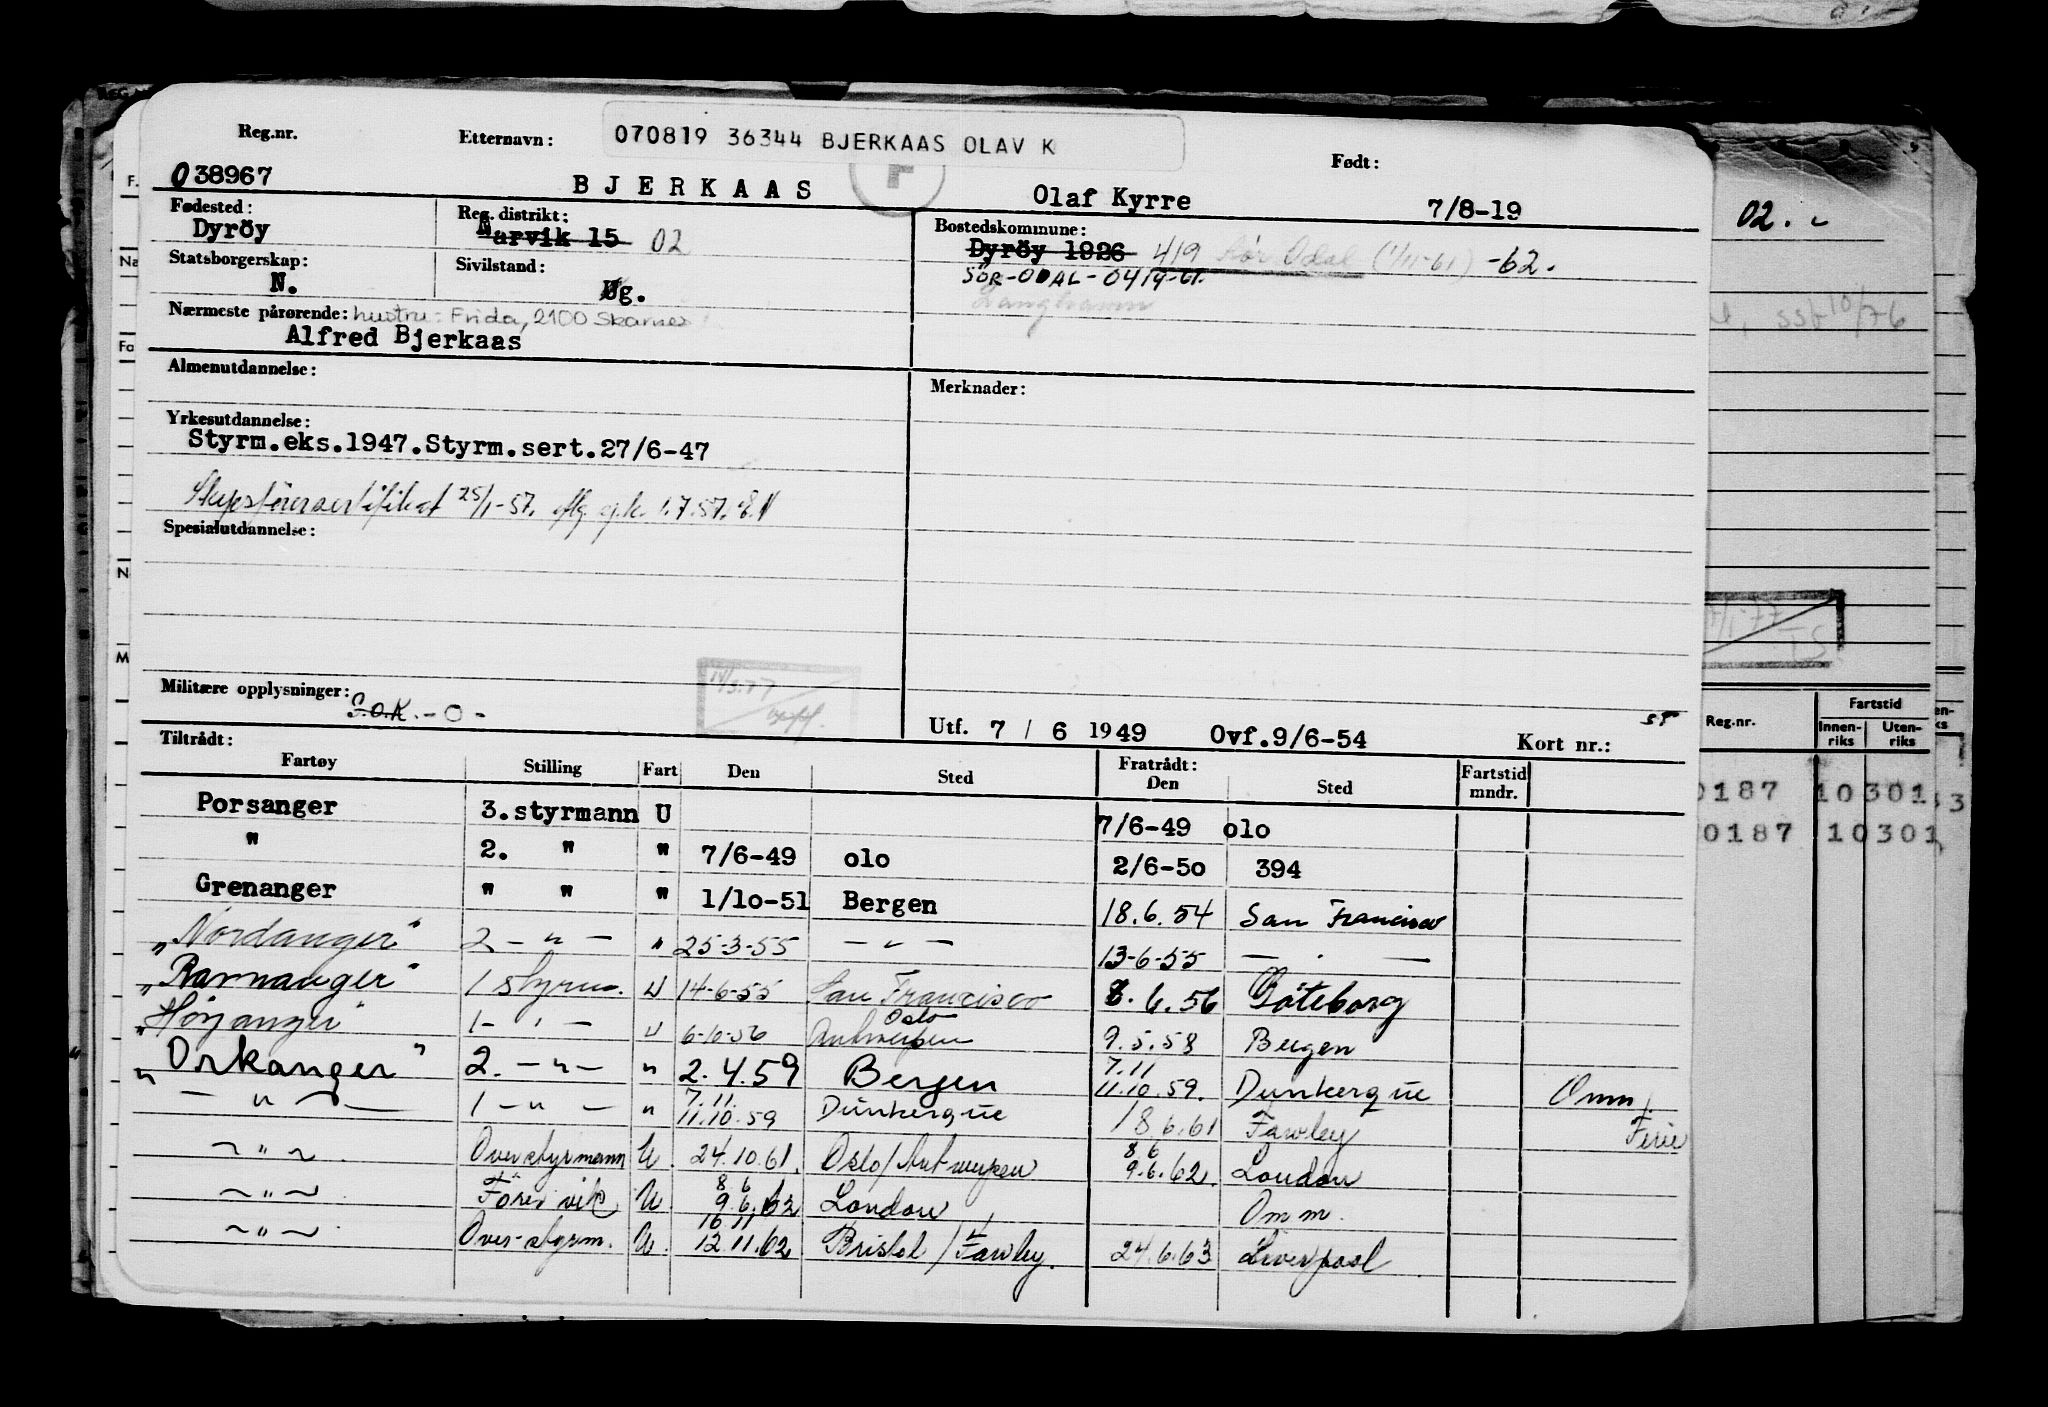 Reg.nr. Etternavn: 070819 36344 BJERKAAS OLAV K Født:
038967 BJERKAAS F Olaf Kyrre 7/8-19
Fødested: Reg. distrikt: Bostedskommune:
Dyröy Narvik 15 02 Dyröy 1926 419 Sör Odal (1/11-61) -62.
SÖR-ODAL-0419-61.
Statsborgerskap: Sivilstand:
N. Ug.
Nærmeste pårørende: hustru: Frida, 2100 Skarnes
Alfred Bjerkaas
Almenutdannelse: Merknader:
Yrkesutdannelse:
Styrm.eks.1947.Styrm.sert.27/6-47
Skipsförersertifikat 25/1-57.
Spesialutdannelse:
Militære opplysninger: S.O.K. -O-
Utf. 7 / 6 1949 Ovf.9/6-54 Kort nr.:
Tiltrådt: Fratrådt:
Fartøy Stilling Fart Den Sted Den Sted Fartstid mndr.
Porsanger 3.styrmann U 7/6-49 olo
" 2. " " 7/6-49 olo 2/6-50 394
Grenanger " " " 1/1o-51 Bergen 18.6.54 San Francisco
"Nordanger" 2 - " - " 25-3-55 - " - 13-6-55 - " -
"Ravnanger" 1 styrm. U 14-6-55 San Francisco 8.6.56 Göteborg
"Höyanger" 1 - " - U 6-10-56 Oslo Antwerpen 9.5.58 Bergen
"Orkanger" 2. - " - " 2.4.59 Bergen 7.11 11.10.59. Dunkerque Omm.
- " - 1 - " - " 7.11. 11.10.59 Dunkerque 18.6.61 Fawley Ferie
- " - Overstyrmann U. 24.10.61. Oslo/Antwerpen 8 6 9.6.62. London
- " - Förer vik U 8 6 9.6.62 London Omm.
- " - Over-styrm. U. 16 11 12.11.62 Bristol / Fawley. 24.6.63 Liverpool
02. -
10/76
Reg.nr. Fartstid
Innenriks Utenriks
0187 10301
0187 10301